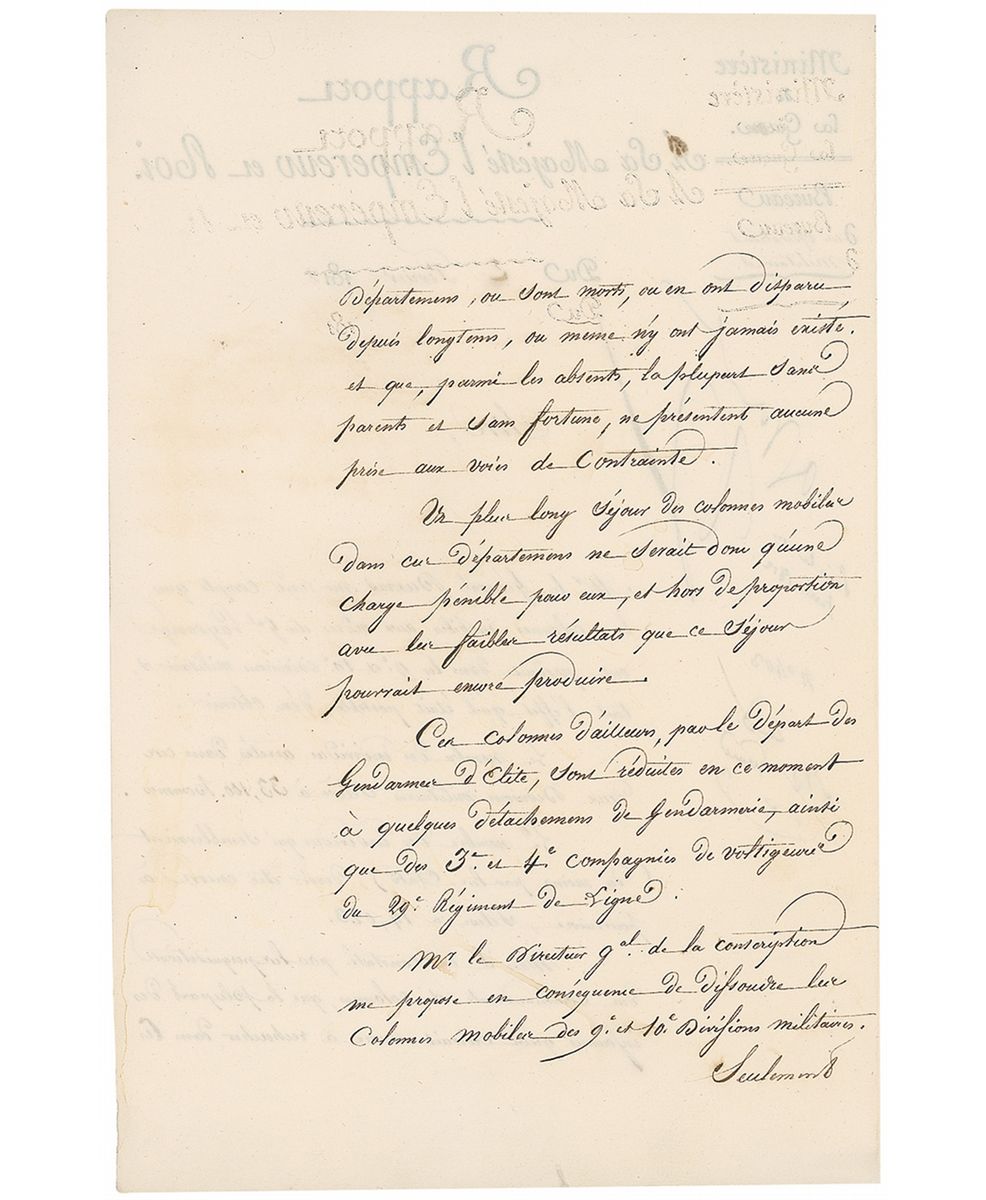 Départemens, ou sont morts, ou en ont disparu
depuis longtems, ou meme n'y ont jamais existé.
et que, parmi les absents, la plupart sans
parents et sans fortune, ne présentent aucune
prise aux voies de Contrainte.
Un plus long séjour des colonnes mobiles
dans ces départemens ne serait donc qu'une
charge pénible pour eux, et hors de proportion
avec les faibles résultats que ce séjour
pourrait encore produire.
Ces colonnes d'ailleurs, par le départ des
Gendarmes d'Elite, sont réduites en ce moment
à quelques détachemens de Gendarmerie, ainsi
que des 3e. et 4e. compagnies de voltigeurs
du 29e. Régiment de Ligne.
Mr. le Directeur gal. de la conscription
me propose en conséquence de dissoudre les
Colonnes mobiles des 9e. et 10e. Divisions militaires.
Seulement